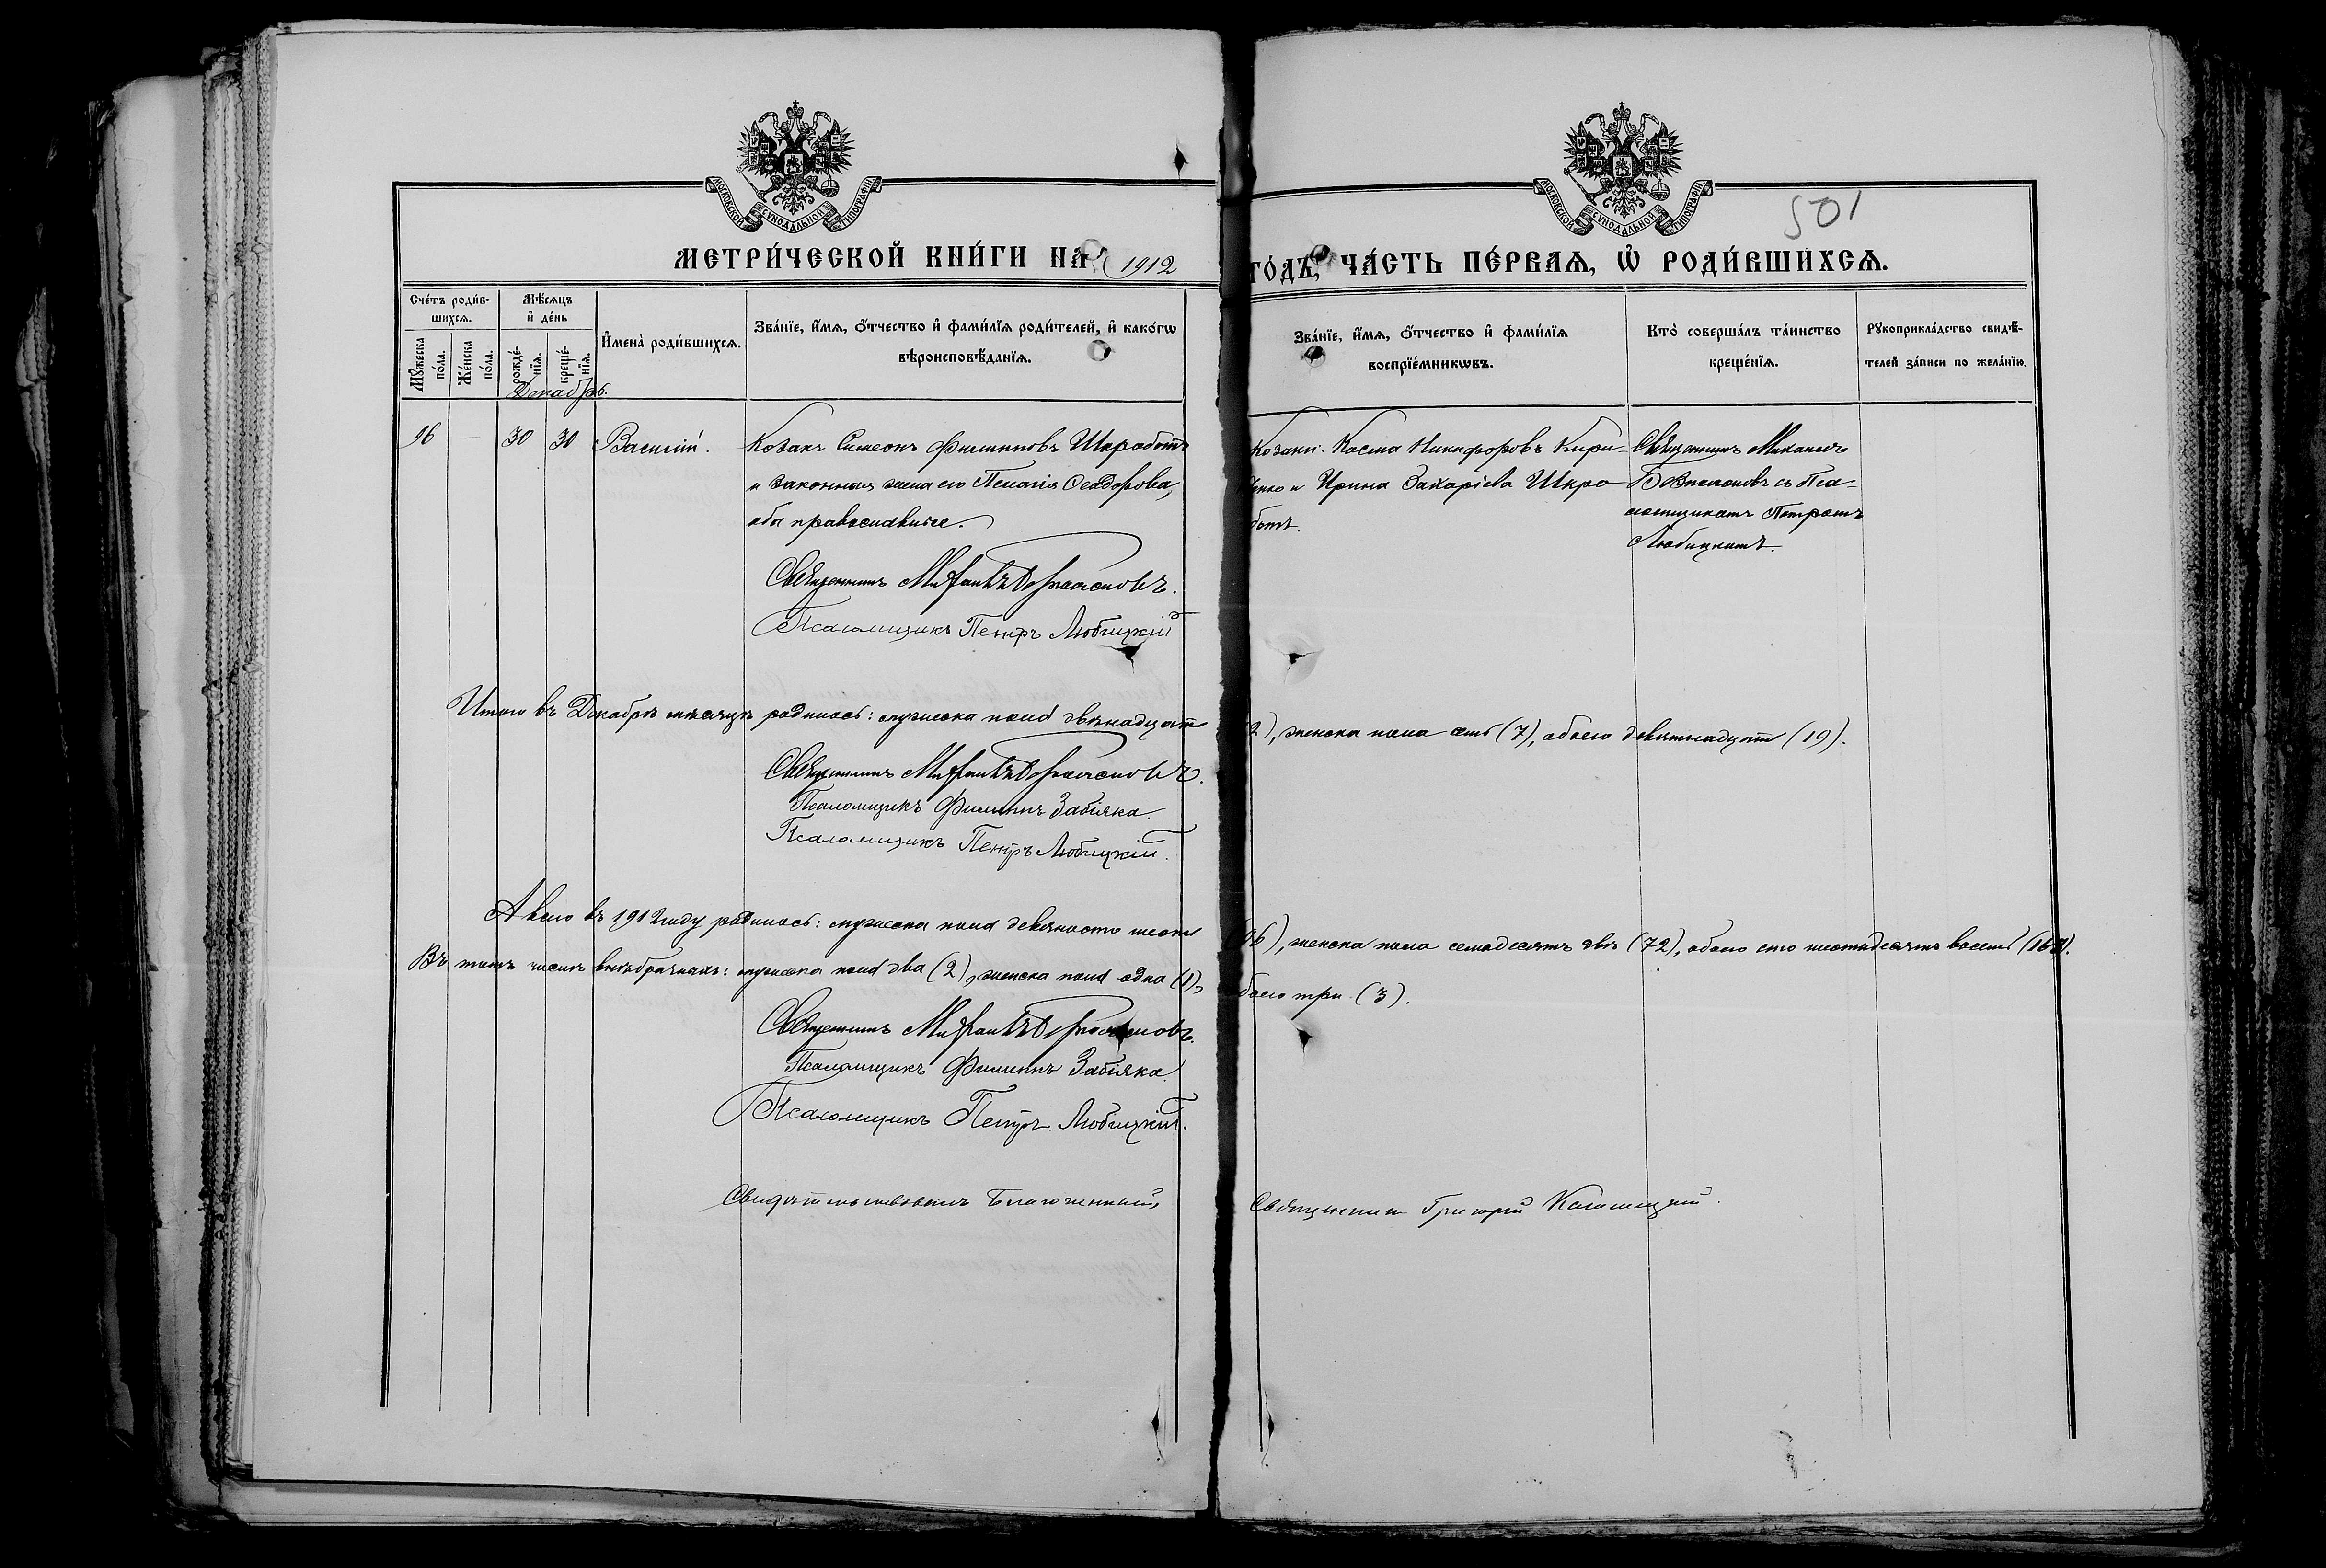 МОСКОВСКОЙ СУНОДАЛЬНОЙ ТИПОГРАФІИ
МОСКОВСКОЙ СУНОДАЛЬНОЙ ТИПОГРАФІИ
501
МЕТРИ́ЧЕСКОЙ КНИ́ГИ НА 1912
ГО́ДЪ, ЧА́СТЬ ПЕ́РВАЯ, Ѡ҆ РОДИ́ВШИХСЯ.
Сче́тъ роди́в-
шихся.
Мꙋ́жеска по́ла.
Же́нска по́ла.
Мѣ́сяцъ
и҆ де́нь
рожде́-
нїя.
креще́-
нїя.
Декабрь.
И҆мена̀ роди́вшихся.
Зва́нїе, и҆́мя, ѻ҆́тчество и҆ фами́лїя роди́телей, и҆ како́гѡ
вѣроисповѣ́данїя.
Зва́нїе, и҆́мя, ѻ҆́тчество и҆ фами́лїя
воспрїе́мникѡвъ.
Кто̀ соверша́лъ та́инство
креще́нїя.
Рꙋкоприкла́дство свидѣ́-
телей за́писи по жела́нїю.
96 — 30 30 Василій.
Козакъ Симеонъ Филипповъ Шкработъ
и законная жена его Пелагія Ѳеодорова,
оба православные.
Козаки: Косма Никифоровъ Кири-
енко и Ирина Захаріева Шкро-
ботъ.
Священникъ Михаилъ
съ Пса-
ломщикомъ Петромъ
Любицкимъ.
Священникъ
Псаломщикъ Петръ Любицкій
Итого въ Декабрѣ мѣсяцѣ родилось: мужеска пола двѣнадцать
2), женска пола семь (7), обоего девятнадцать (19).
Священникъ
Псаломщикъ Филиппъ Забіяка.
Псаломщикъ Петръ Любицкій.
А всего въ 1912 году родилось: мужеска пола девяносто шесть
96), женска пола семьдесятъ двѣ (72), обоего сто шестьдесятъ восемь (168).
Въ томъ числѣ внѣбрачныхъ: мужеска пола два (2), женска пола одна (1),
боего три (3).
Священникъ
Псаломщикъ Филиппъ Забіяка.
Псаломщикъ Петръ Любицкій.
Свидѣтельствовалъ Благочинный,
Священникъ Григорій